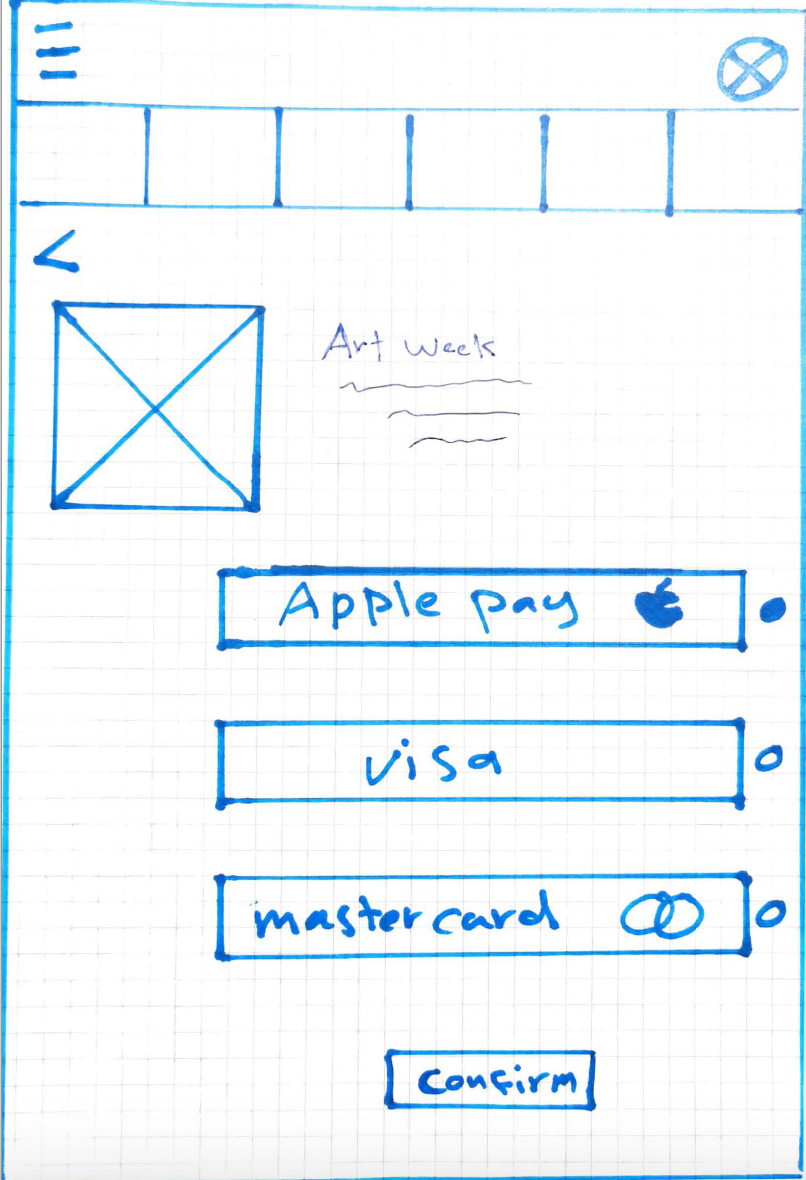 Art Week
Apple pay
visa
mastercard
confirm